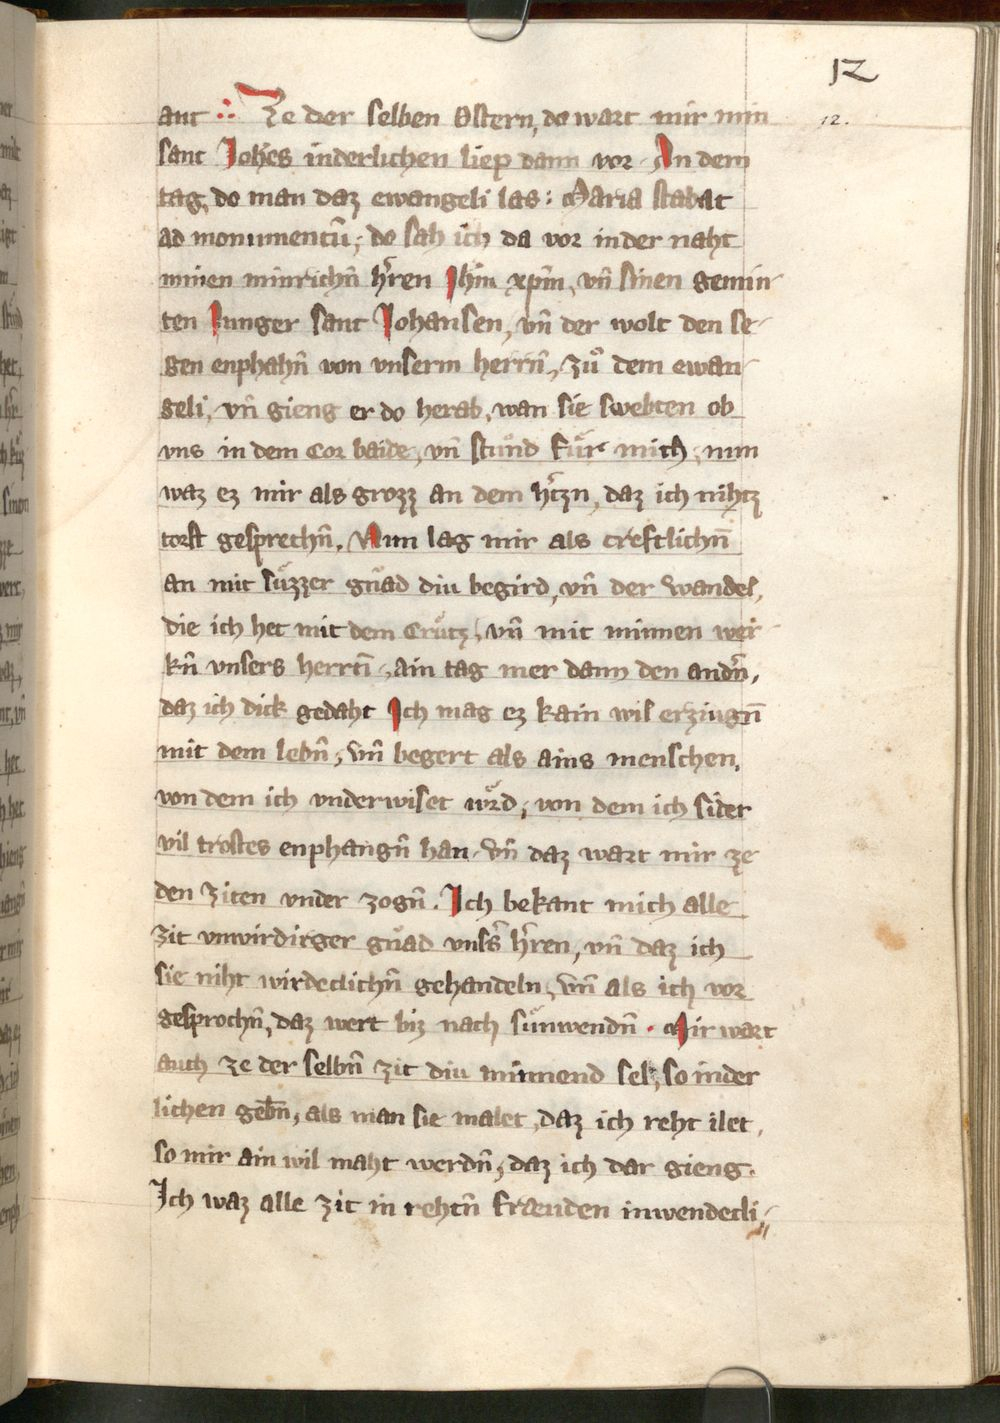 12
12.
ant ⁘ Ze der selben Ostern, do wart mir min
sant Johēs inderlichen liep dann vor · An dem
tag, do man daz ewangeli las: Maria stabat
ad monumentū; do sah ich da vor in der naht
minen minrichn̄ hr̄en Jhm̄ xpm̄, vn̄ sinen gemin-
ten Junger sant Johansen, vn̄ der wolt den se-
gen enphahn̄ von vnserm herrn̄, zuͦ dem ewan-
geli, vn̄ gieng er do herab, wan sie swebten ob
vns in dem Cor baide, vn̄ stuͦnd fuͤr mich, nun
waz ez mir als grozz an dem hr̄tzn, daz ich nihtz
torst gesprechn̄. Nun lag mir als creftlichn̄
an mit suͤzzer gnad diu begird, vn̄ der wandel,
die ich het mit dem Cruͤtz, vn̄ mit minnen wer-
kn̄ vnsers herrn̄, ain tag mer dann den andn̄,
daz ich dick gedaht Ich mag ez kain wil erziugn̄
mit dem lebn̄, vn̄ begert als ains menschen,
von dem ich vnderwiset wuͤrd, von dem ich sider
vil trostes enphangn̄ han, vn̄ daz wart mir ze
den ziten vnder zogn̄. Ich bekant mich alle
zit vnwirdirger gnad vnss̄ hr̄en, vn̄ daz ich
sie niht wirdeclichn̄ gehandeln, vn̄ als ich vor
gesprochn̄, daz wert biz nach suͤnwendn̄ · Mir wart
auch ze der selbn̄ zit diu minnend sel, so inder
lichen gebn̄, als man sie malet, daz ich reht ilet,
so mir ain wil maht werdn̄, daz ich dar gieng.
Ich waz alle zit in rehtn̄ fraeuden inwendecli-